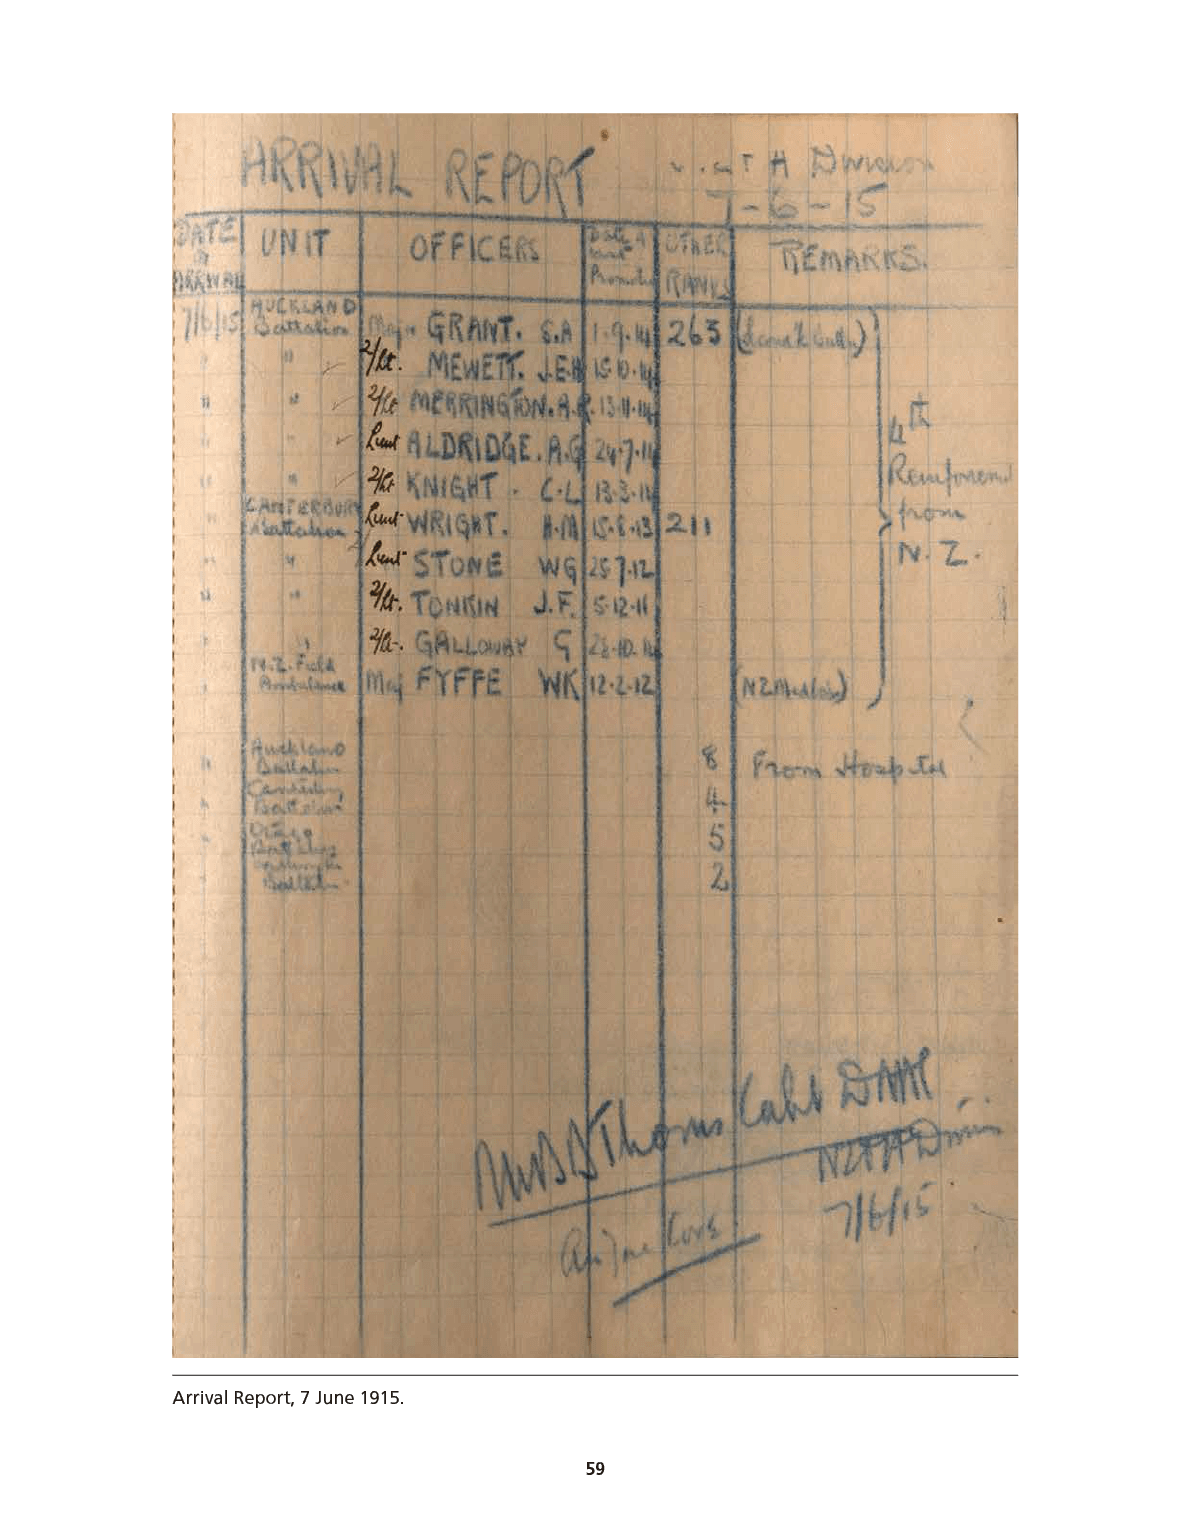 ARRIVAL REPORT A Division
7-6-15
DATE OF ARRIVAL UNIT OFFICERS Date of last OTHER RANKS REMARKS.
7/6/15 AUCKLAND Battalion Major GRANT. S.A 1-9-14 263
" " 2/Lt. MEWETT. J.E.H 15-10-14
" " 2/Lt MERRINGTON. A.R. 13-11-14
" " Lieut ALDRIDGE. A.G 24-7-11
" " 2/Lt KNIGHT. C.L
" CANTERBURY Battalion Lieut WRIGHT. H.M 15-8-13 211
" " Lieut STONE WG 25-7-12
" " 2/Lt. TONKIN J.F. 5-12-11
" " 2/Lt. GALLOWAY G
" N.Z. Field Ambulance Maj FYFFE WK 12-2-12
4th
Reinforcement
from
N.Z.
" Auckland Battalion 8 From Hospital
" Canterbury Battalion 4
" Otago Battalion 5
" Battalion 2
Thoms Capt
NZ & A Division
7/6/15
Arrival Report, 7 June 1915.
59